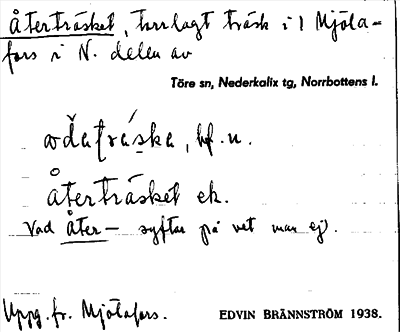 Återträsket, torrlagt träsk i 1 Mjöla-
fors i N. delen av
Töre sn, Nederkalix tg, Norrbottens l.
, bf. n.
Återträsket ek.
Vad åter- syftar på vet man ej.
Uppg. fr. Mjölafors.
EDVIN BRÄNNSTRÖM 1938.